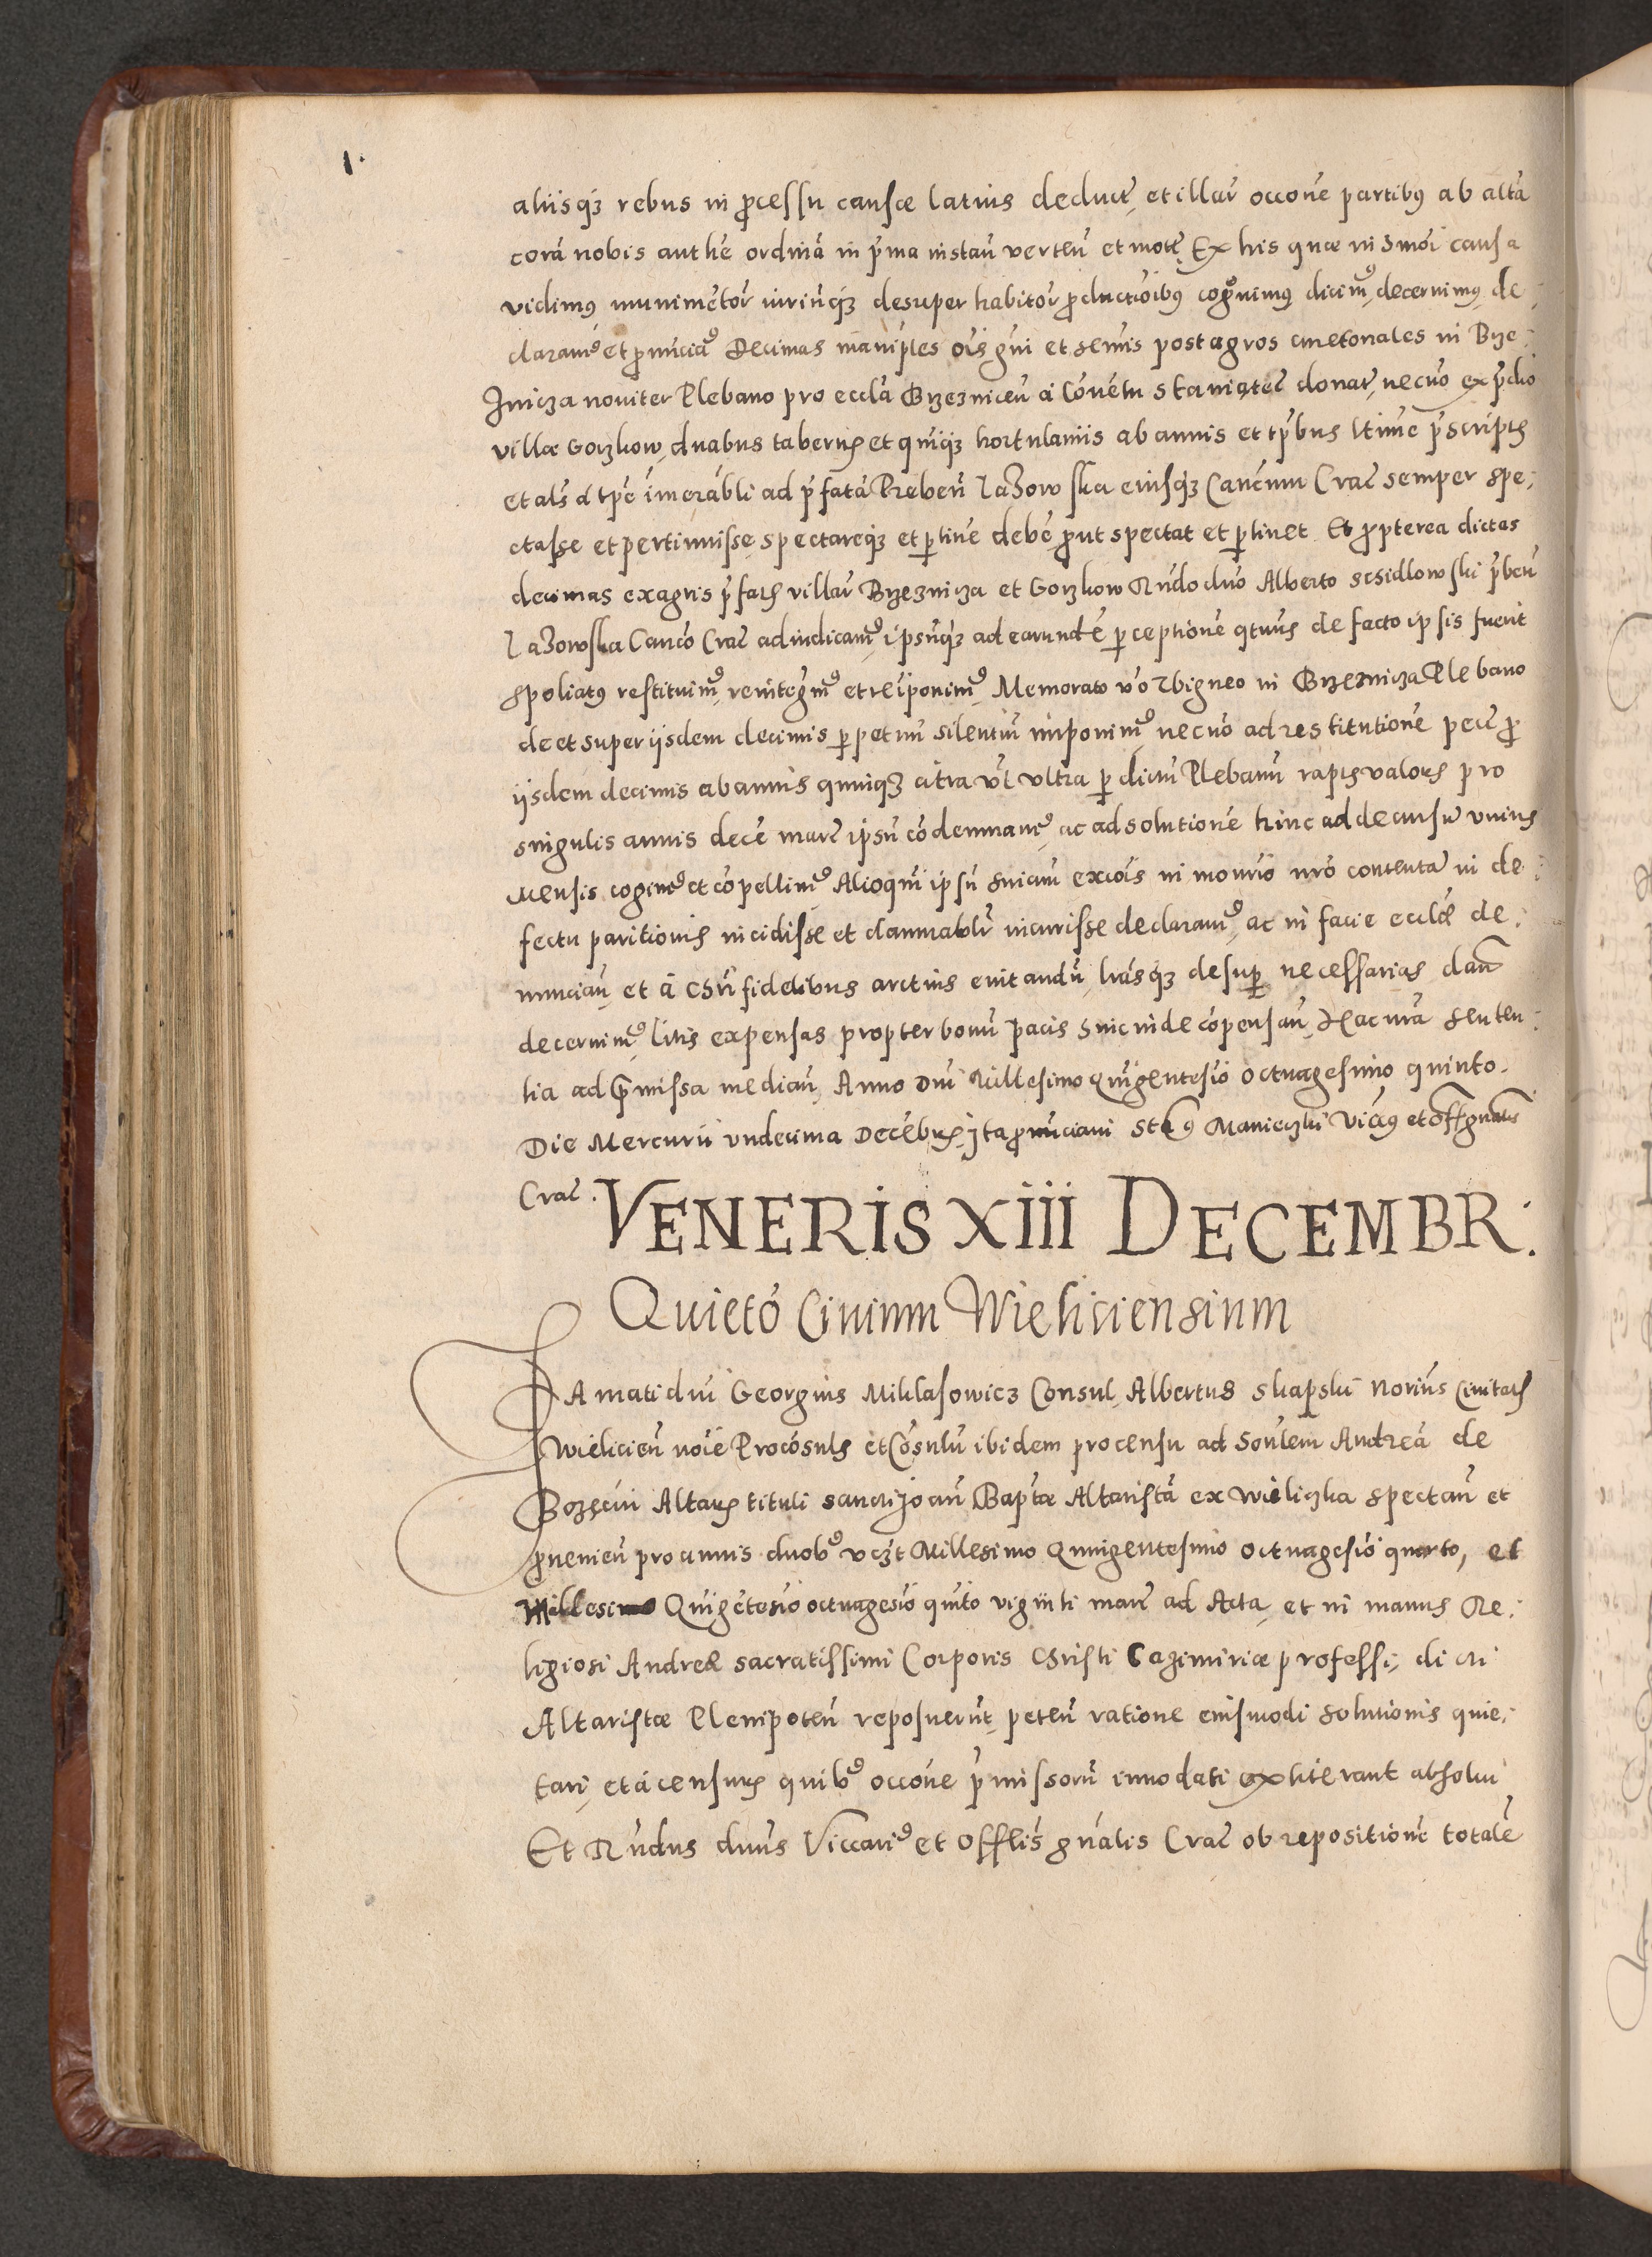 1.
aliisq3 rebus in p̱cessu causæ latius deduct̃, et illar̃ occõne partibꝰ ab altã
corã nobis authẽ ordnĩa in p̃ma instañ verteñ et mot̃. Ex his quæ in 3mõi causa
vidimꝰ munimẽtor̃ utrinq̃3 desuper habitor̃ p̱ductiõibꝰ cognõuimꝰ dicimꝰ, decernimꝰ, de:
claramꝰ et p̱nũciamꝰ Decimas manip̃les oĩs gñi et semĩs post agros cmetonales in Brze:
znicza nouiter Plebano pro eccl̃a Brzezniceñ a Cõuẽtu Staniątec̃ donat̃, necnõ ex p̃dio
villæ Gorzkow, duabus tabernis et quinq3 hortulaniis ab annis et tp̃bus l̃time p̃scriptis
et al̃s a tp̃e im̃orãbli ad p̃fatã Prebeñ Lazowska eiusq̃3 Canc̃um Crac̃ semper spe:
ctasse et pertinuisse, spectareq̃3 et p̱tine debẽ p̱ut spectat et p̱tinet. Et p̱pterea dictas
decimas ex agris p̃fatis villar̃ Brzeznicza et Gorzkow Rñdo dño Alberto Scsidlowski p̃beñ
Lazowska Canc̃o Crac̃ adiudicamꝰ, ipsũq3 ad earundẽ p̱ceptionẽ q̃tenus de facto ipsis fuerit
spoliatꝰ restituimꝰ, reintegrãmꝰ et reĩponimꝰ. Memorato v̾o Zbigneo in Brzeznicza Plebano
de et super iisdem decimis p̱petuũ silentiũ imponimꝰ necnõ ad restitutionẽ pecũ p̱
iisdem decimis ab annis quinq3 citra vl̃ vltra p̱ dictũ Plebanũ raptis valoris pro
singulis annis decẽ marc̃ ipsũ cõdemnamꝰ, ac ad solutionẽ hinc ad decursũ vnius
mensis cogimꝰ et cõpellimꝰ. Alioqui ipsũ sniam excoĩs in monrĩo nrõ contentã in de:
fectu paritionis incidisse et damnabl̃r incurisse declaramꝰ, ac in facie eccliæ de:
nunciañ et a Chrĩ fidelibus arctius euitandũ, lrãsq̃3 desup̱ necessarias dañ
decernimꝰ, litis expensas propter bonũ pacis hincinde cõpensañ, Hac nrã senten:
tia ad p̃missa mediañ, Anno Dnĩ Millesimo Quĩgentesĩo octuagesimo quinto.
Die Mercurii vndecima Decẽbris, Ita p̱nũciaui Stãꝰ Manieczki Vicꝰ et Off. gñalis
Crac̃.
VENERIS XIII DECEMBR:
Quietõ Ciuium Wieliciensium
FAmati dnĩ Georgius Miklasowicz Consul, Albertus Skapski Norĩus Ciuitatis
Wielicieñ noĩe Procõsulis et Cõsulũ ibidem pro censu ad Sorĩlem Andreã de
Bozęcin Altaris tituli sancti Joañ Baptæ Altaristã ex Wieliczka spectañ et
p̱uenieñ pro annis duobꝰ vcz̃t Millesimo Quingentesimo octuagesĩo quarto, et
Millesimo Quĩgẽtesĩo octuagesĩo quĩto viginti marc̃ ad Acta, et in manus Re:
ligiosi Andreæ sacratissimi Corporis Christi Cazimiriæ professi, dicti
Altaristæ Plenipoteñ reposuerũt, peteñ ratione eiusmodi solutionis quie:
tari, et a censuris quibꝰ occõne p̃missorũ innodati extiterant absolui
Et Rñdus dnũs Viccariꝰ et Offl̃is gñalis Crac̃ ob repositionẽ totalẽ